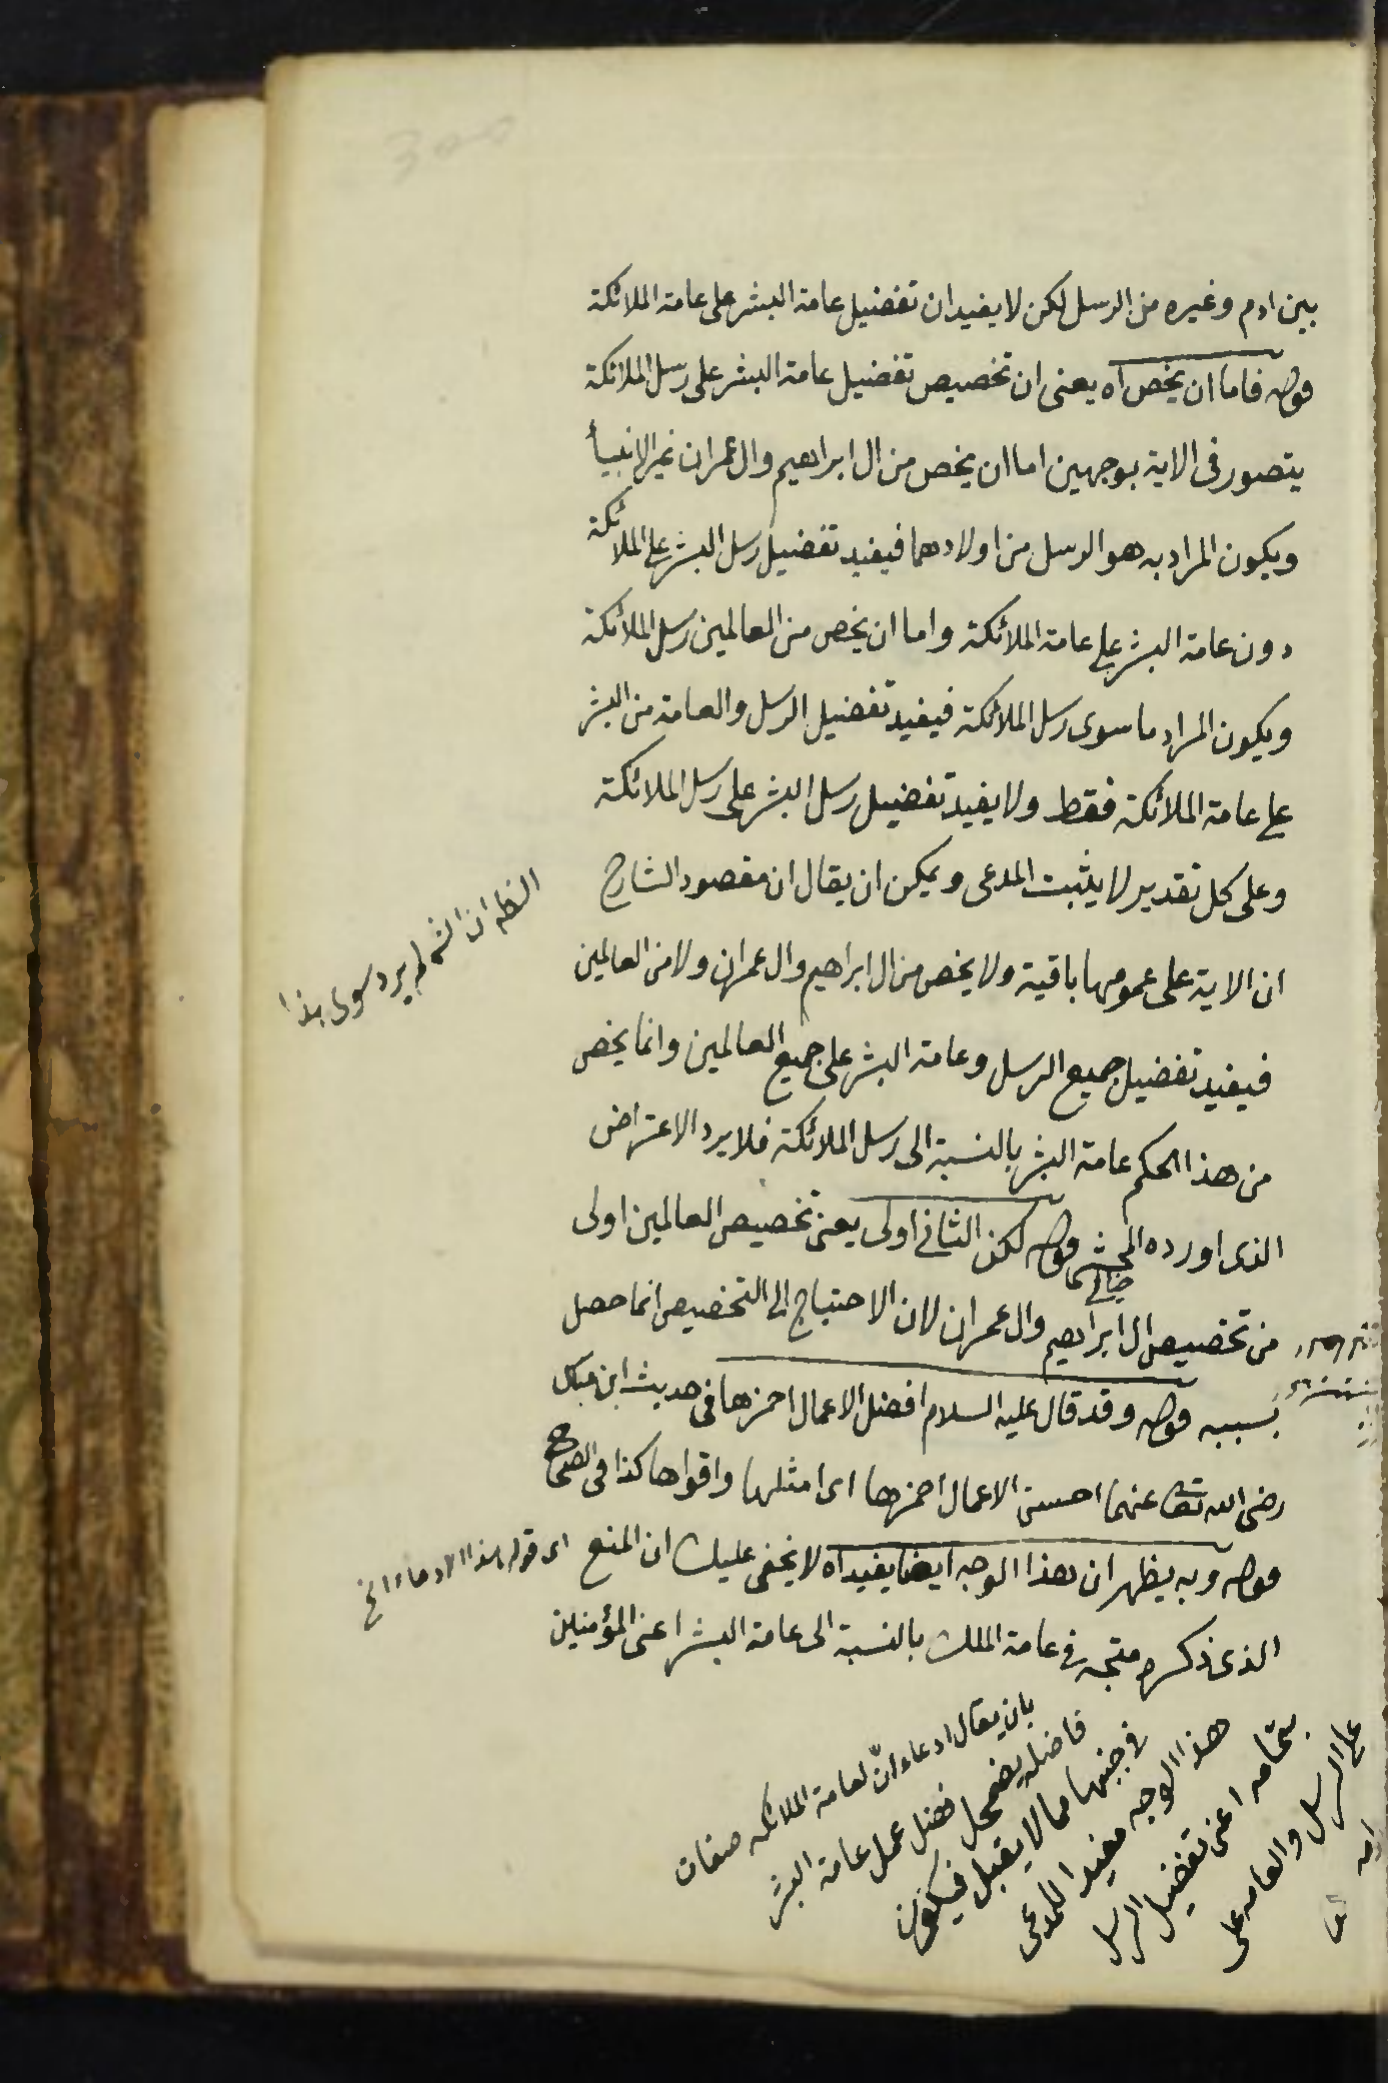 بين ادم وغيره من الرسل لكن لا يفيد ان تفضيل عامة البشر على عامة الملائكة
قوله فاما ان يخص اه يعنى ان تخصيص تفضيل عامة البشر على رسل الملائكة
يتصور فى الاية بوجهين اما ان يخص من ال ابراهيم وال عمران غير الانبيأ
ويكون المراد به هو الرسل من اولادهما فيفيد تفضيل رسل البشر على الملائكة
دون عامة البشر على عامة الملائكة واما ان يخص من العالمين رسل الملائكة
ويكون المراد ما سوى رسل الملائكة فيفيد تفضيل الرسل والعامة من البشر
على عامة الملائكة فقط ولا يفيد تفضيل رسل البشر على رسل الملائكة
وعلى كل تقدير لا يثبت المدعى ويمكن ان يقال ان مقصود الشارح
الظه ان الشه لم يرد سوى هذا
ان الاية على عمومها باقية ولا يخص من ال ابراهيم وال عمران ولا من العالمين
فيفيد تفضيل جميع الرسل وعامة البشر على جميع العالمين وانما يخص
من هذا الحكم عامة البشر بالنسبة الى رسل الملائكة فلا يرد الاعتراض
الذى اورده المحشى قوله لكن الثانى اولى يعنى تخصيص العالمين اولى
خيالى
من تخصيص ال ابراهيم وال عمران لان الاحتياج الى التخصيص انما حصل
بسببه قوله وقد قال عليه السلام افضل الاعمال احمزها فى حديث ابن عباس
رضى الله تعا عنهما احسن الاعمال احمزها اى امثلها واقواها كذا فى الصحاح
قوله وبه يظهر ان هذا الوجه ايضا يفيد اه لا يخفى عليك ان المنع
اى قوله هذا الادعاء الخ
الذى ذكره متجه فى عامة الملك بالنسبة الى عامة البشر اعنى المؤمنين
بان يقال ادعاء انّ لعامة الملائكه صفات
فاضله يضمحل فضل عمل عامة البشر
فى جنبها مما لا يقبل فيكون
هذا الوجه مفيدا للمدعى
بتمامه اعنى تفضيل الرسل
على الرسل والعامه على